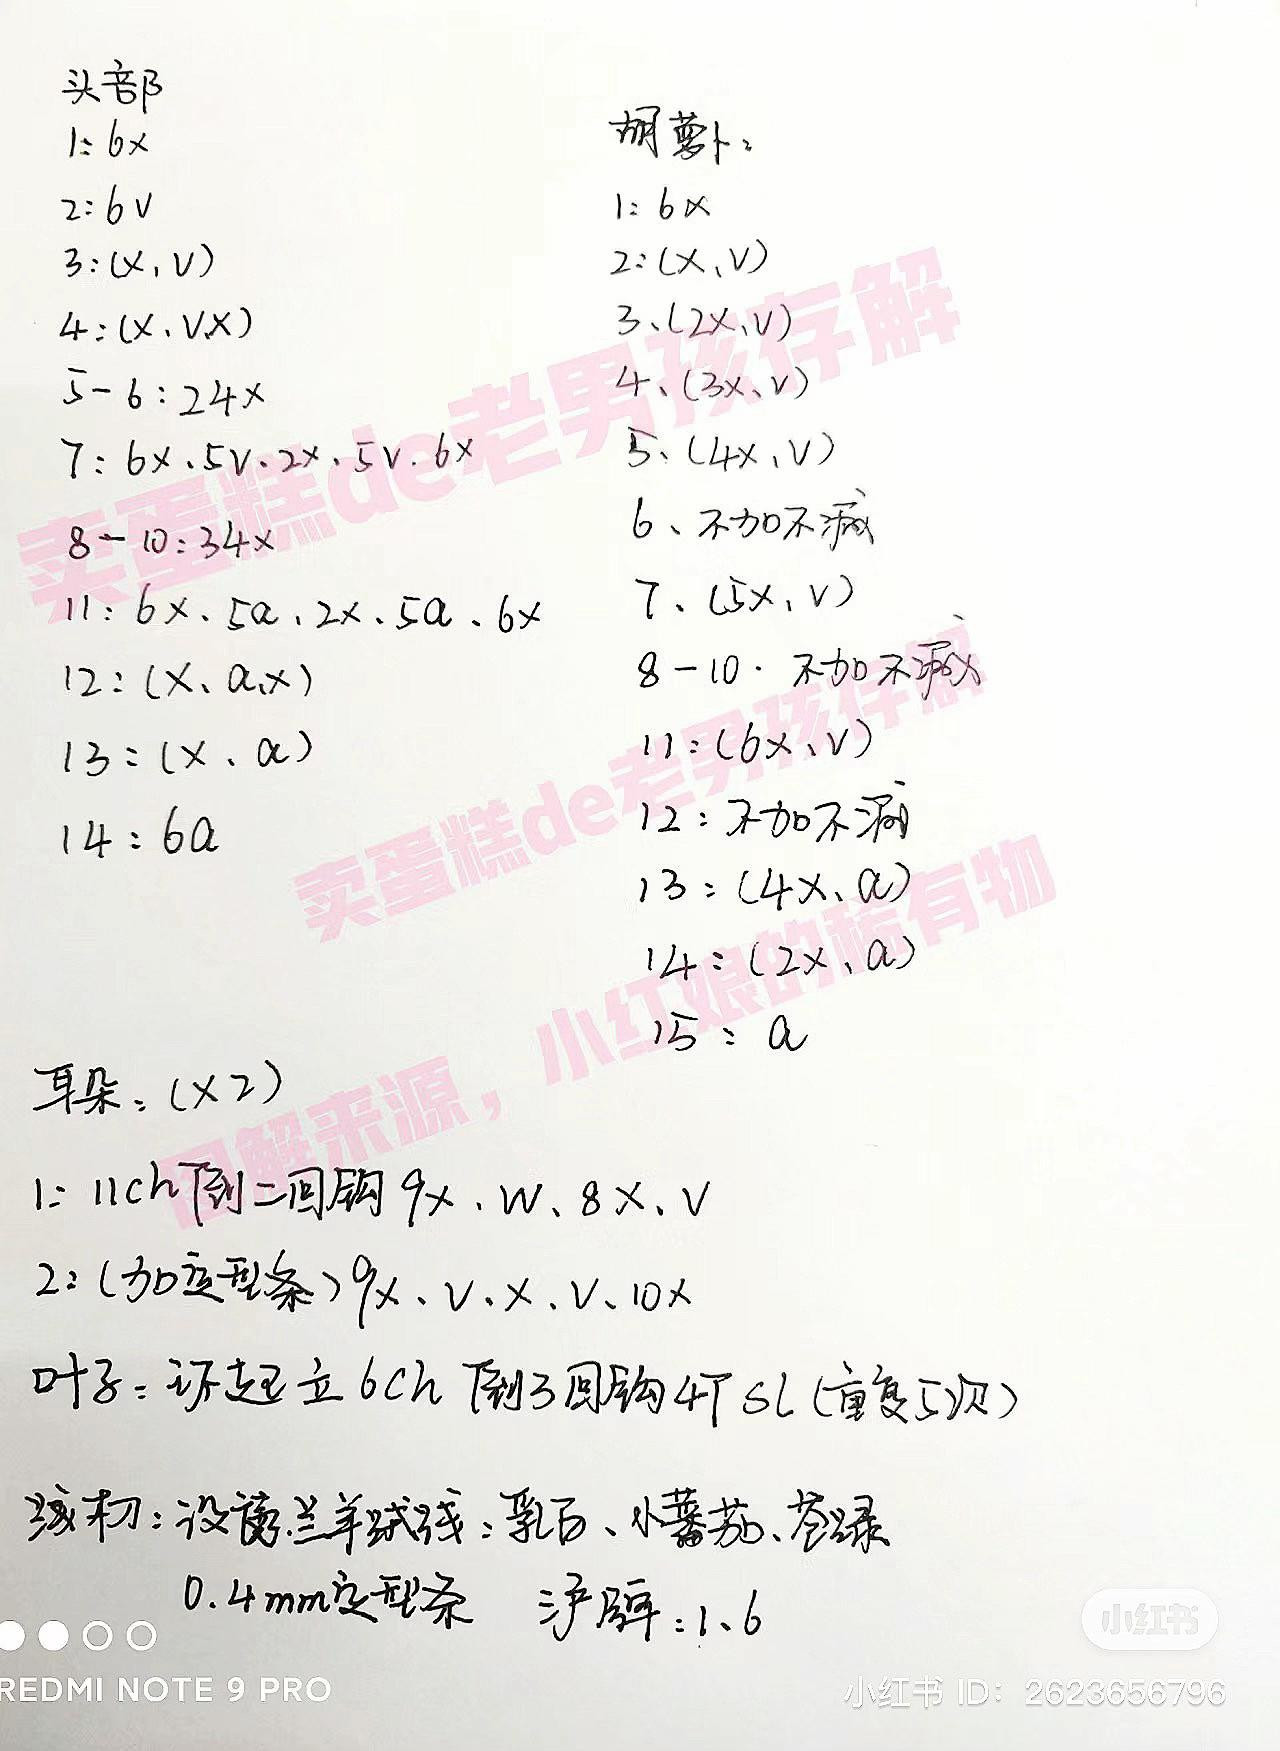 头部
1: 6x
2: 6v
3: (x、v)
4: (x、v.x)
5-6: 24x
7: 6x、5v、2x、5v、6x
8-10: 34x
11: 6x、5a、2x、5a、6x
12: (x、a、x)
13: (x、a)
14: 6a
胡萝卜:
1: 6x
2: (x、v)
3、(2x、v)
4、(3x、v)
5、(4x、v)
6、不加不减
7、(5x、v)
8-10. 不加不减
11: (6x、v)
12: 不加不减
13: (4x、a)
14: (2x、a)
15: a
耳朵: (x2)
1: 11ch 倒二回钩 9x、w、8x、v
2: (加定型条) 9x、v、x、v、10x
叶子: 环起立 6ch 倒3回钩 4T SL (重复5次)
线材: 设得兰羊绒线: 乳白、小蕃茄、苍绿
0.4mm定型条 沪工牌: 1.6
卖蛋糕de老男孩存解
卖蛋糕de老男孩存解
图解来源，小红娘的稀有物
REDMI NOTE 9 PRO
小红书
小红书 ID: 2623656796